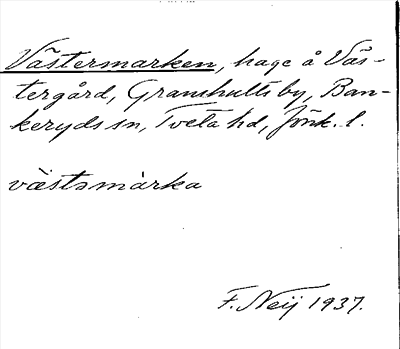 Västermarken, hage å Väs-
tergård, Granshults by, Ban-
keryds sn, Tveta hd, Jönk. l.
västsmàrka
F. Neij 1937.